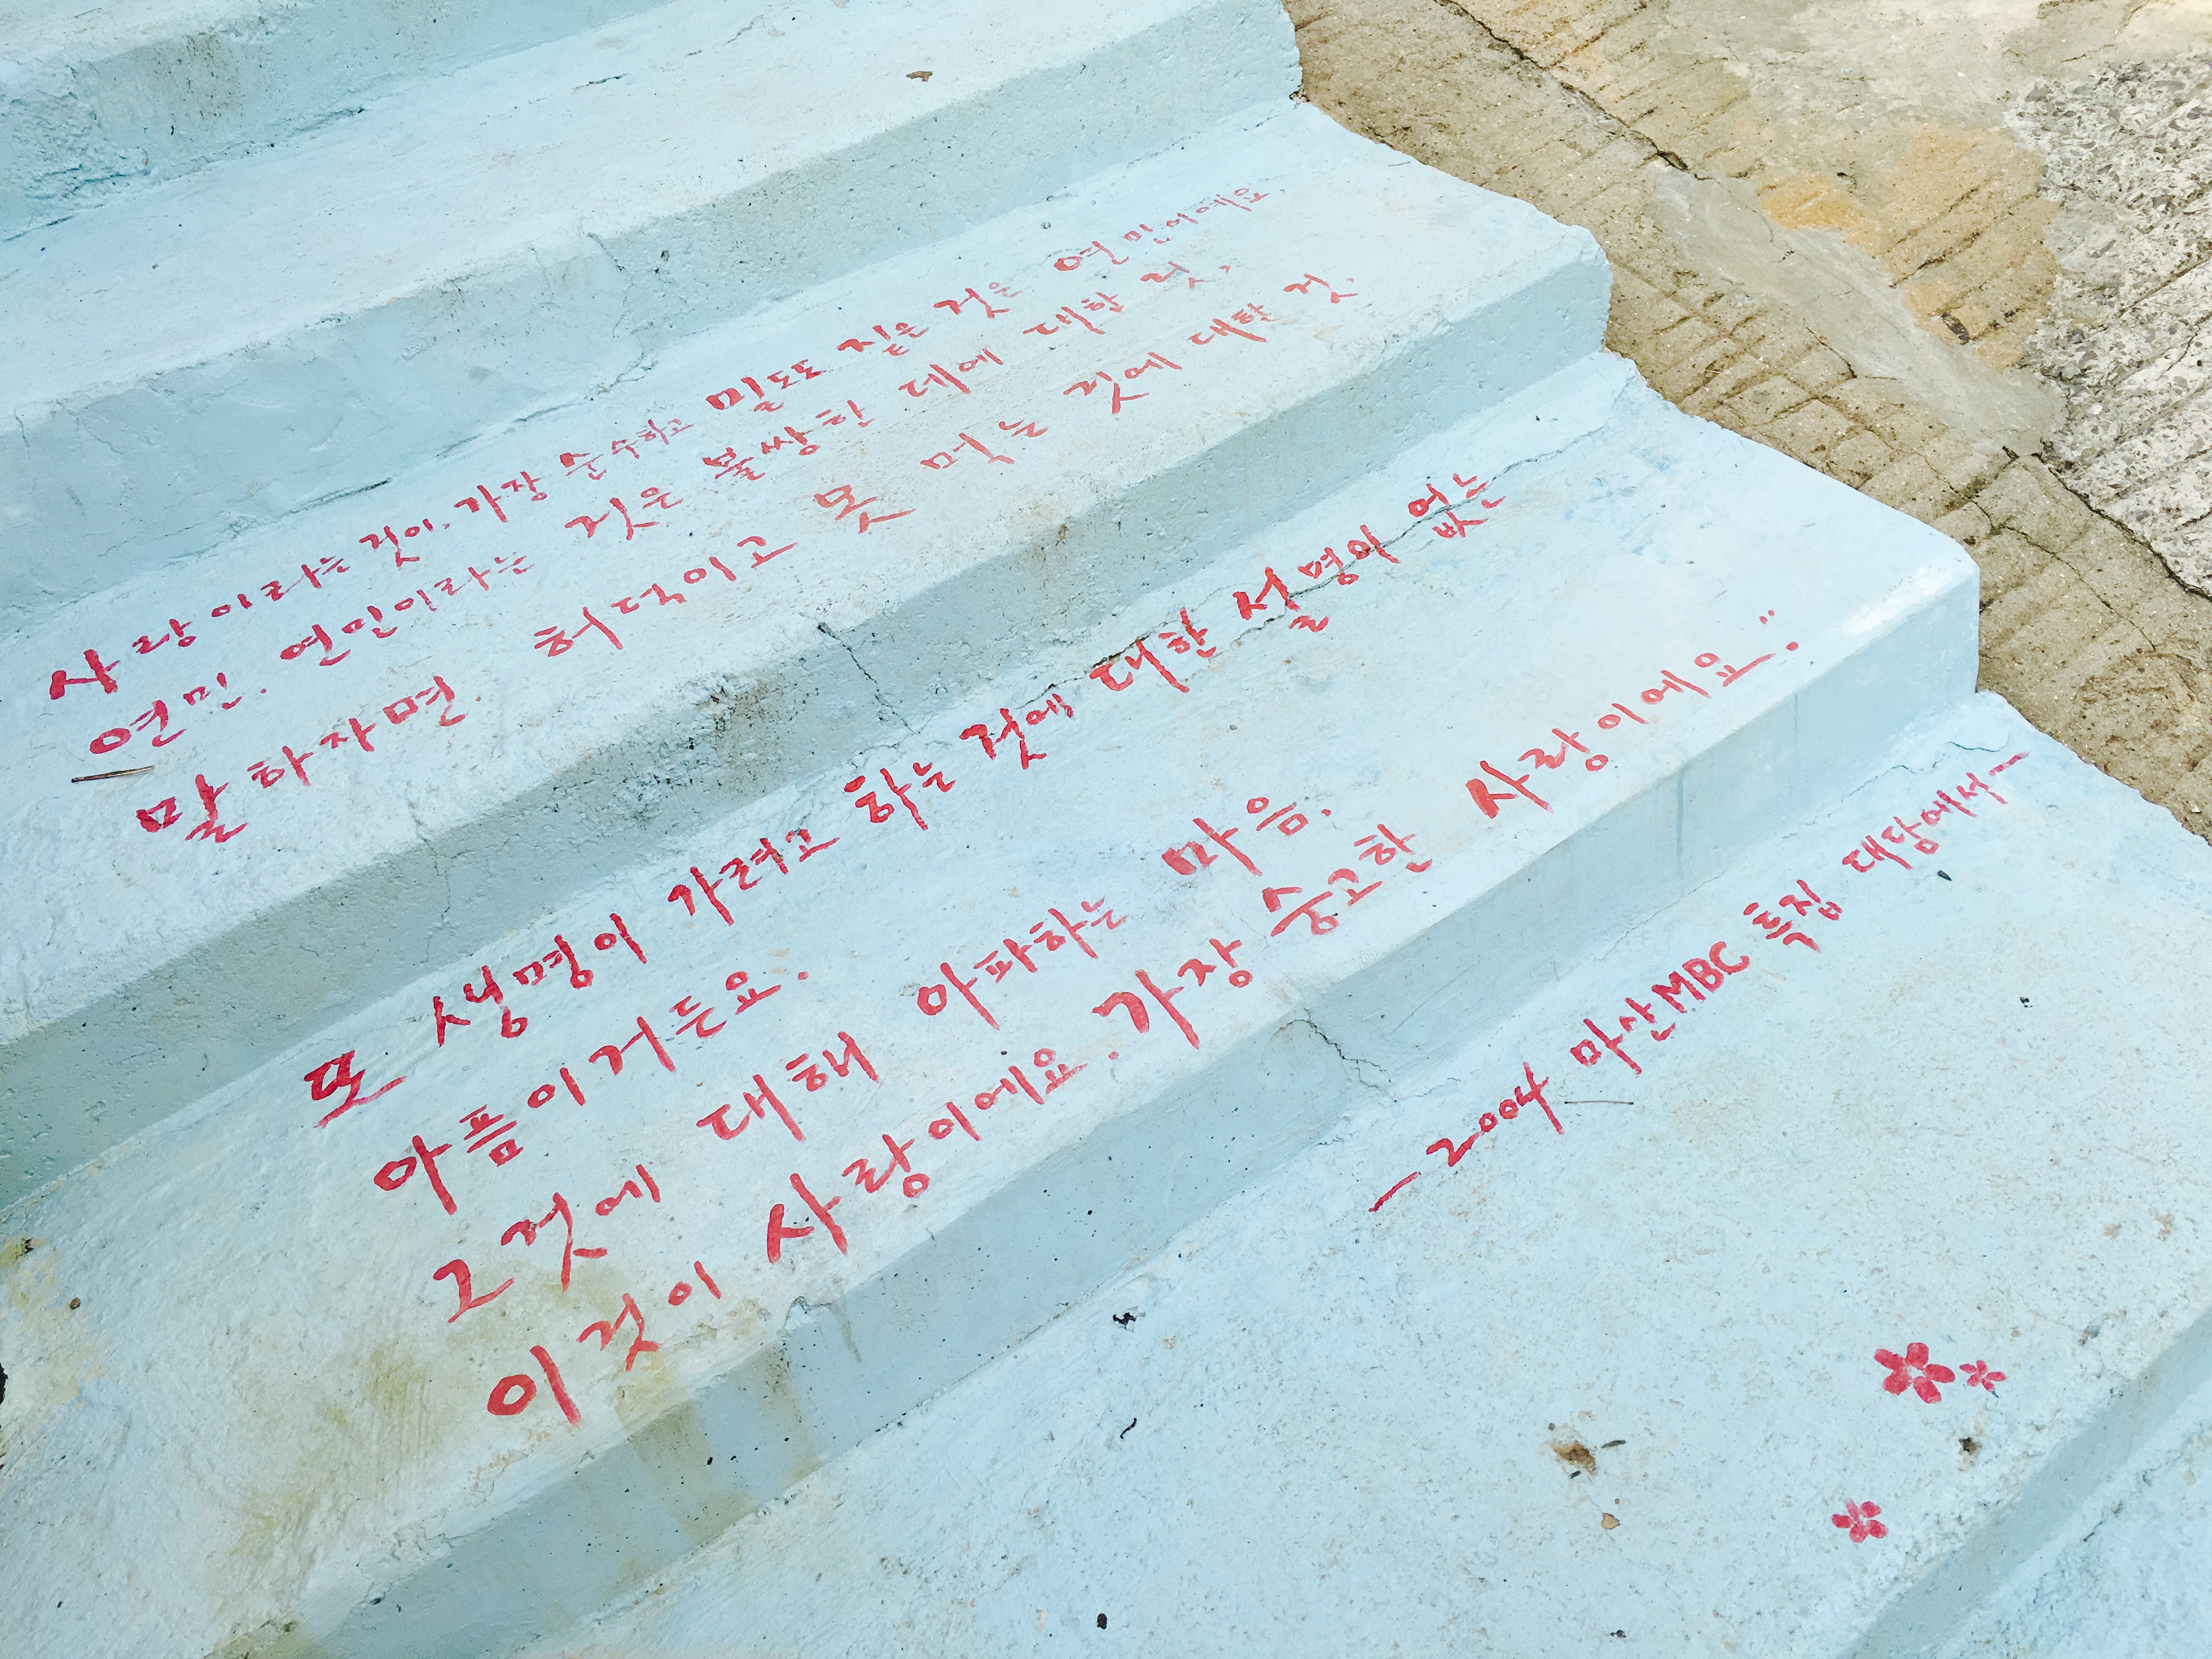 사랑이라는 것이. 가장 순수하고 밀도도 짙은 것은 연민이에요.
연민. 연민이라는 것은 불쌍한 데에 대한 것.
말하자면 허덕이고 못 먹는 것에 대한 것.
또 생명이 가려고 하는 것에 대한 설명이 없는
아픔이거든요.
그것에 대해 아파하는 마음.
이것이 사랑이에요. 가장 숭고한 사랑이에요..
-2004 마산MBC 특집 대담에서-